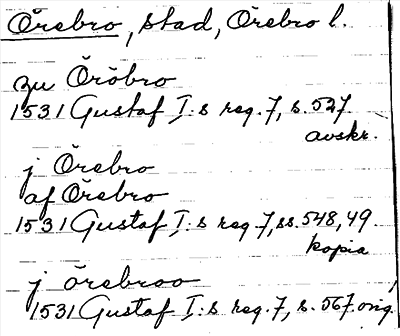 Örebro, stad, Örebro l.
zu Öröbro
1531 Gustaf I:s reg. 7, s. 527.
avskr.
j Örebro
af Örebro
1531 Gustaf I:s reg 7, ss. 548, 49
kopia
j örebroo
1531 Gustaf I:s reg. 7, s. 567. orig.